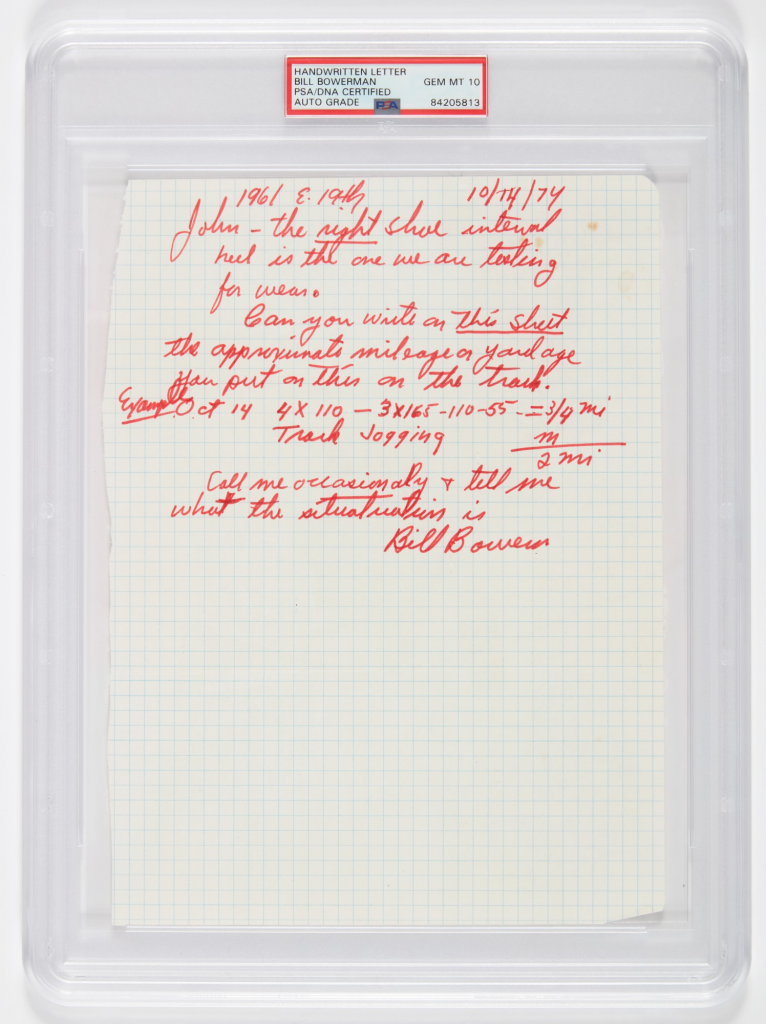 HANDWRITTEN LETTER
BILL BOWERMAN GEM MT 10
PSA/DNA CERTIFIED
AUTO GRADE PSA 84205813
1961 E. 19th 10/14/74
John - the right shoe internal
heel is the one we are testing
for wear.
Can you write on this sheet
the approximate mileage or yardage
you put on this on the track.
Example Oct 14 4 X 110 - 3X165-110-55 - = 3/4 mi
Track Jogging m
2 mi
Call me occasionally & tell me
what the situatuation is
Bill Bowerm